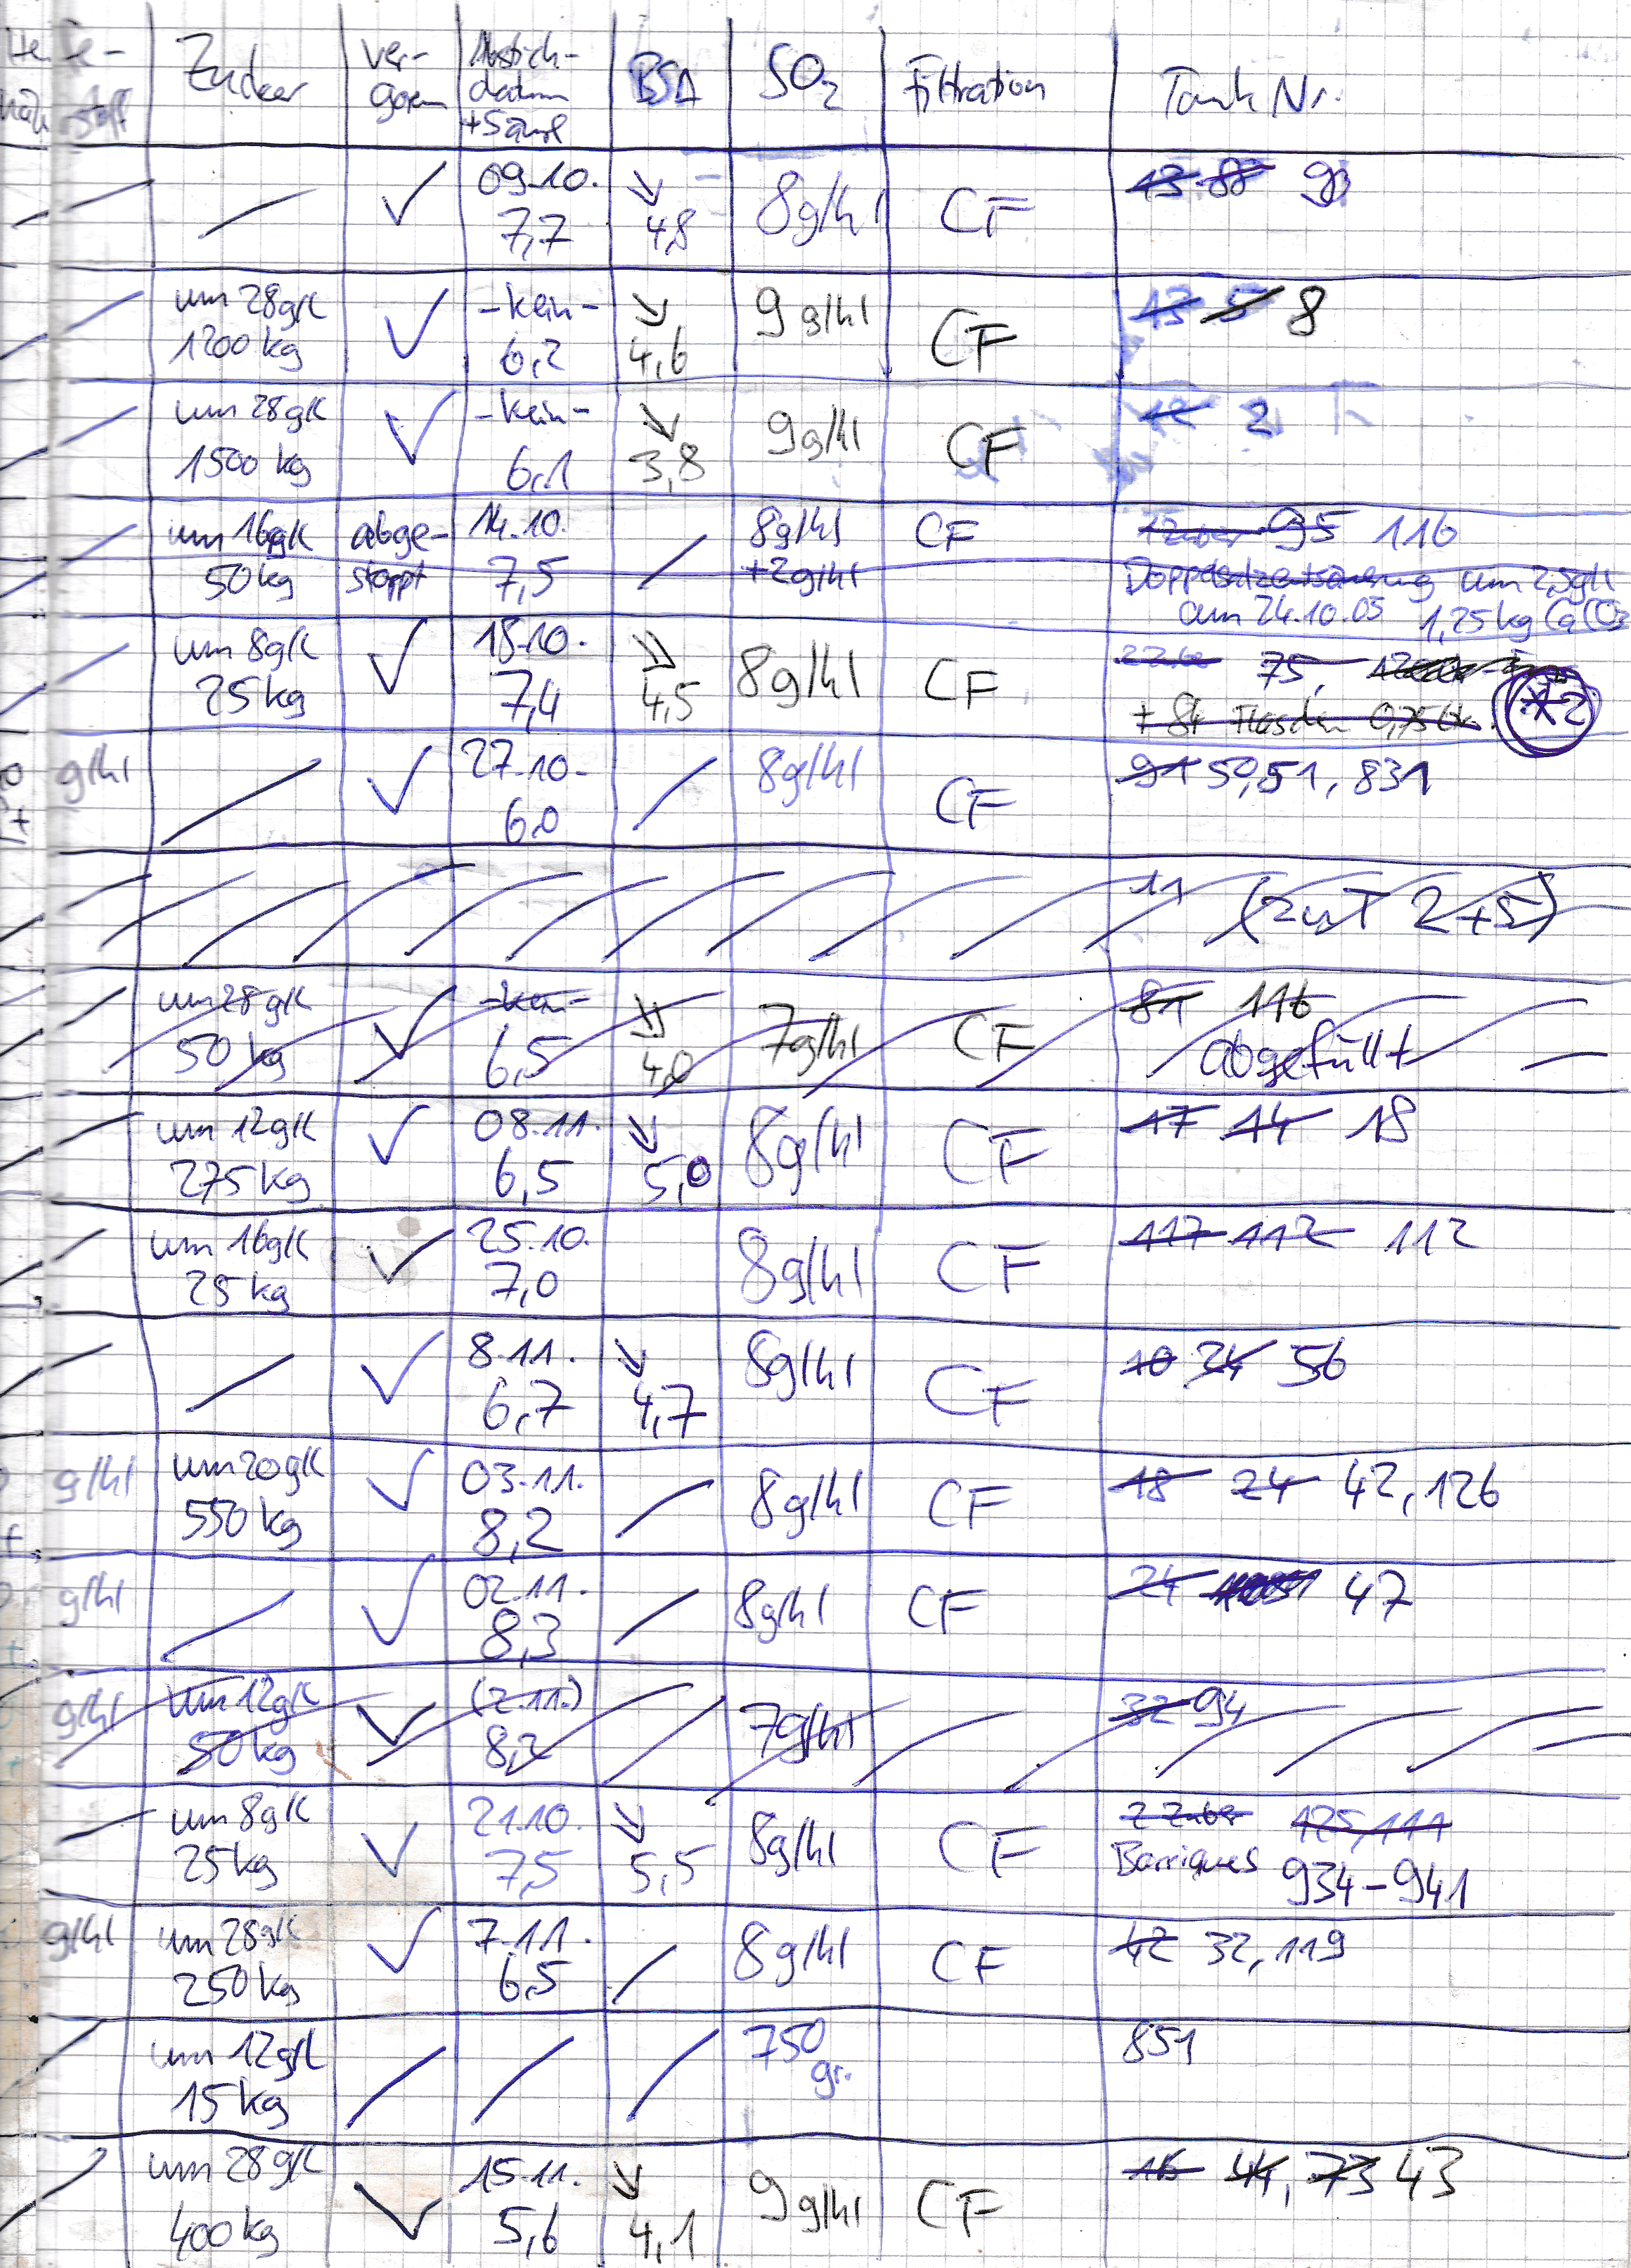 Zucker ver- Abstich- BSA SO₂ Filtration Tank Nr.
goren datum
+Säure
/ / ✓ 09.10. ↘ 8g/hl CF 13 88 93
7,7 4,8
/ um 28g/l ✓ -kein- ↘ 9g/hl CF 13 5 8
1200 kg 6,2 4,6
/ um 28g/l ✓ -kein- ↘ 9g/hl CF 12 2
1500 kg 6,1 3,8
/ um 16g/l abge- 14.10. / 8g/hl CF 1 Zuber 95 116
50 kg stoppt 7,5 +2g/hl Doppelsalzentsäuerung um 2,5g/l
am 24.10.05 1,25kg CaCO₃
/ um 8g/l ✓ 18.10. ↘ 8g/hl CF 2 Zuber 75,
25 kg 7,4 4,5 + 84 Flaschen 0,75 *2
g/hl / ✓ 27.10. / 8g/hl CF 91 50,51, 831
6,0
11 (zu T 2+5)
um 28 g/l ✓ -kein- ↘ 7g/hl CF 81 116
50 kg 6,5 4,0 abgefüllt
/ um 12g/l ✓ 08.11. ↘ 8g/hl CF 17 14 18
275 kg 6,5 5,0
/ um 16g/l ✓ 25.10. 8g/hl CF 117 112 112
25 kg 7,0
/ / ✓ 8.11. ↘ 8g/hl CF 10 34 56
6,7 4,7
g/hl um 20g/l ✓ 03.11. / 8g/hl CF 18 24 42, 126
550 kg 8,2
g/hl / ✓ 02.11. / 8g/hl CF 24 47
8,3
g/hl um 12g/l ✓ (2.11.) / 7g/hl 32 94
50 kg 8,2
/ um 8g/l ✓ 21.10. ↘ 8g/hl CF 2 Zuber 125, 111
25 kg 7,5 5,5 Barriques 934-941
g/hl um 28g/l ✓ 7.11. / 8g/hl CF 42 32, 119
250 kg 6,5
/ um 12g/l / / / 750 851
15 kg gr.
/ um 28 g/l ✓ 15.11. ↘ 9g/hl CF 16 44, 73 43
400 kg 5,6 4,1